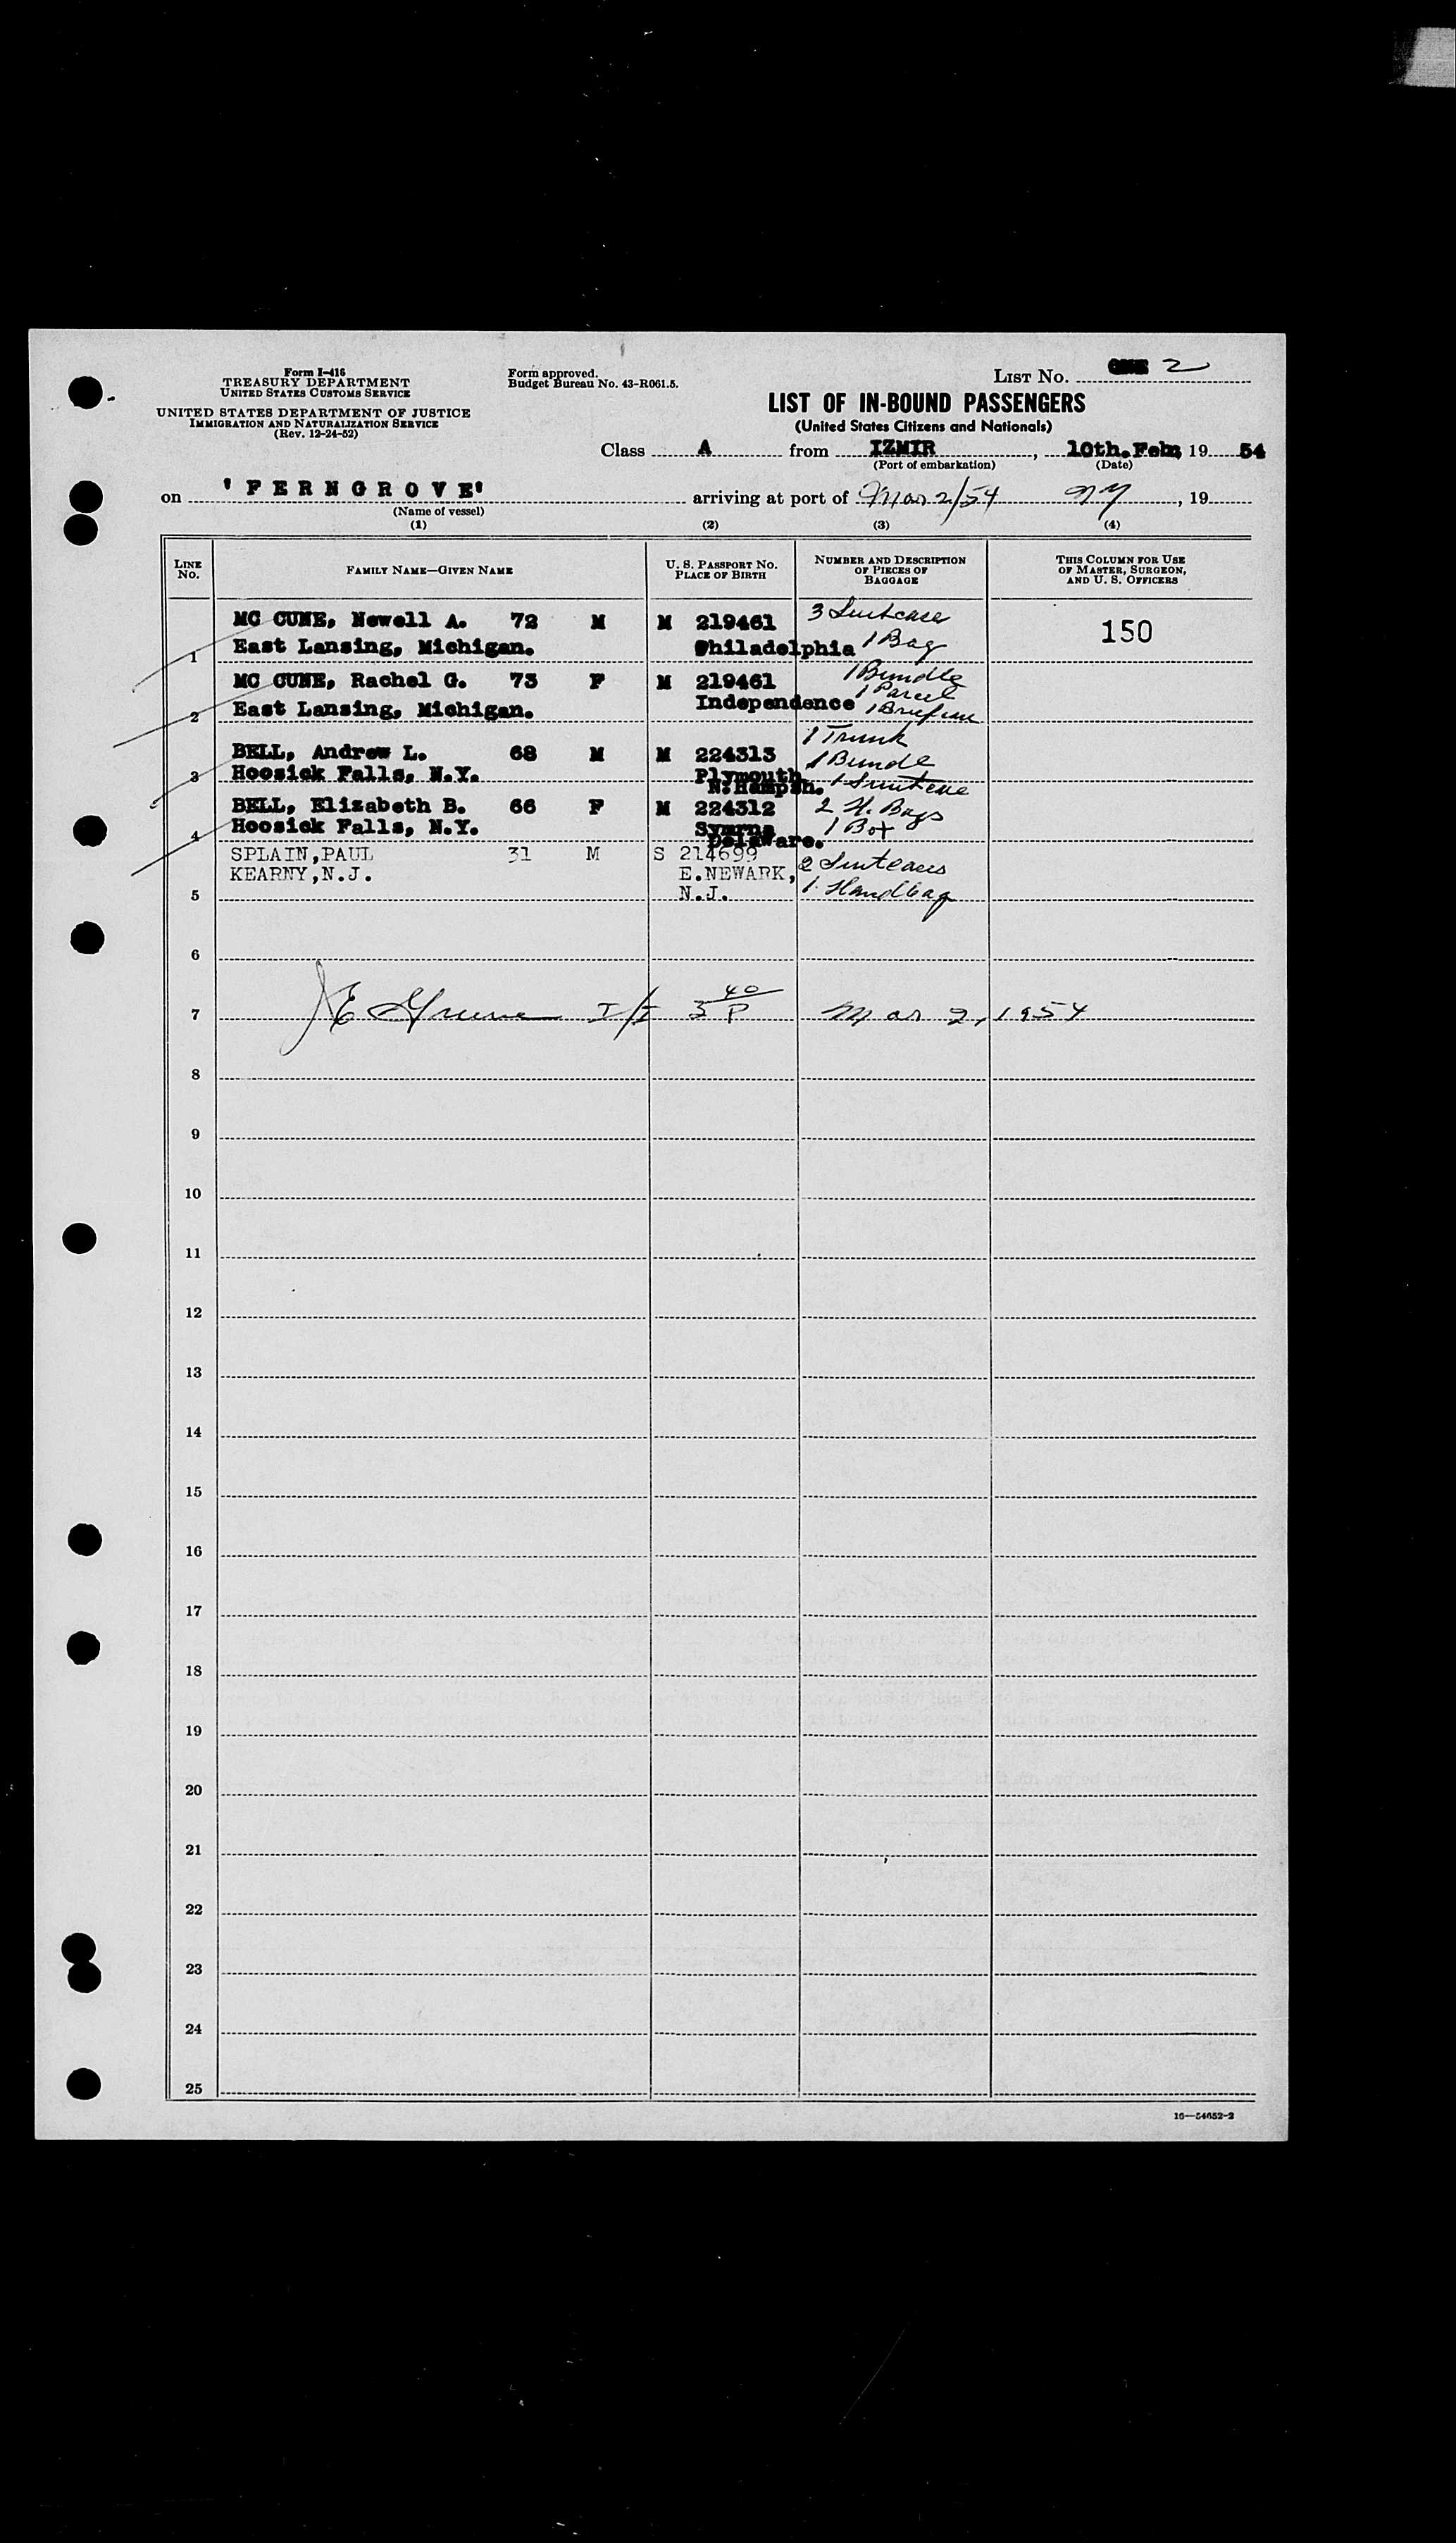 Form I-416
TREASURY DEPARTMENT
UNITED STATES CUSTOMS SERVICE
UNITED STATES DEPARTMENT OF JUSTICE
IMMIGRATION AND NATURALIZATION SERVICE
(Rev. 12-24-52)
Form approved.
Budget Bureau No. 43-R061.5.
LIST NO. 2
LIST OF IN-BOUND PASSENGERS
(United States Citizens and Nationals)
Class A from IZMIR, 10th. Feb, 19 54
(Port of embarkation) (Date)
on 'FERNGROVE' arriving at port of Mar 2/54 NY, 19
(Name of vessel)
(1) (2) (3) (4)
LINE NO. FAMILY NAME—GIVEN NAME U. S. PASSPORT NO. PLACE OF BIRTH NUMBER AND DESCRIPTION OF PIECES OF BAGGAGE THIS COLUMN FOR USE OF MASTER, SURGEON, AND U. S. OFFICERS
MC CUNE, Newell A. 72 M M 219461 3 Suitcase 150
1 East Lansing, Michigan. Philadelphia 1 Bag
MC CUNE, Rachel G. 73 F M 219461 1 Bundle
1 Parcel
2 East Lansing, Michigan. Independence 1 Briefcase
BELL, Andrew L. 68 M M 224313 1 Trunk
1 Bundle
3 Hoosick Falls, N.Y. Plymouth N.Hampsh. 1 Suitcase
BELL, Elizabeth B. 66 F M 224312 2 H. Bags
4 Hoosick Falls, N.Y. Symrna Delaware. 1 Box
SPLAIN,PAUL 31 M S 214699
KEARNY,N.J. E.NEWARK, 2 Suitcases
5 N.J. 1 Handbag
6
7 I/I 3 40 P Mar 2, 1954
8
9
10
11
12
13
14
15
16
17
18
19
20
21
22
23
24
25
16—54652-2